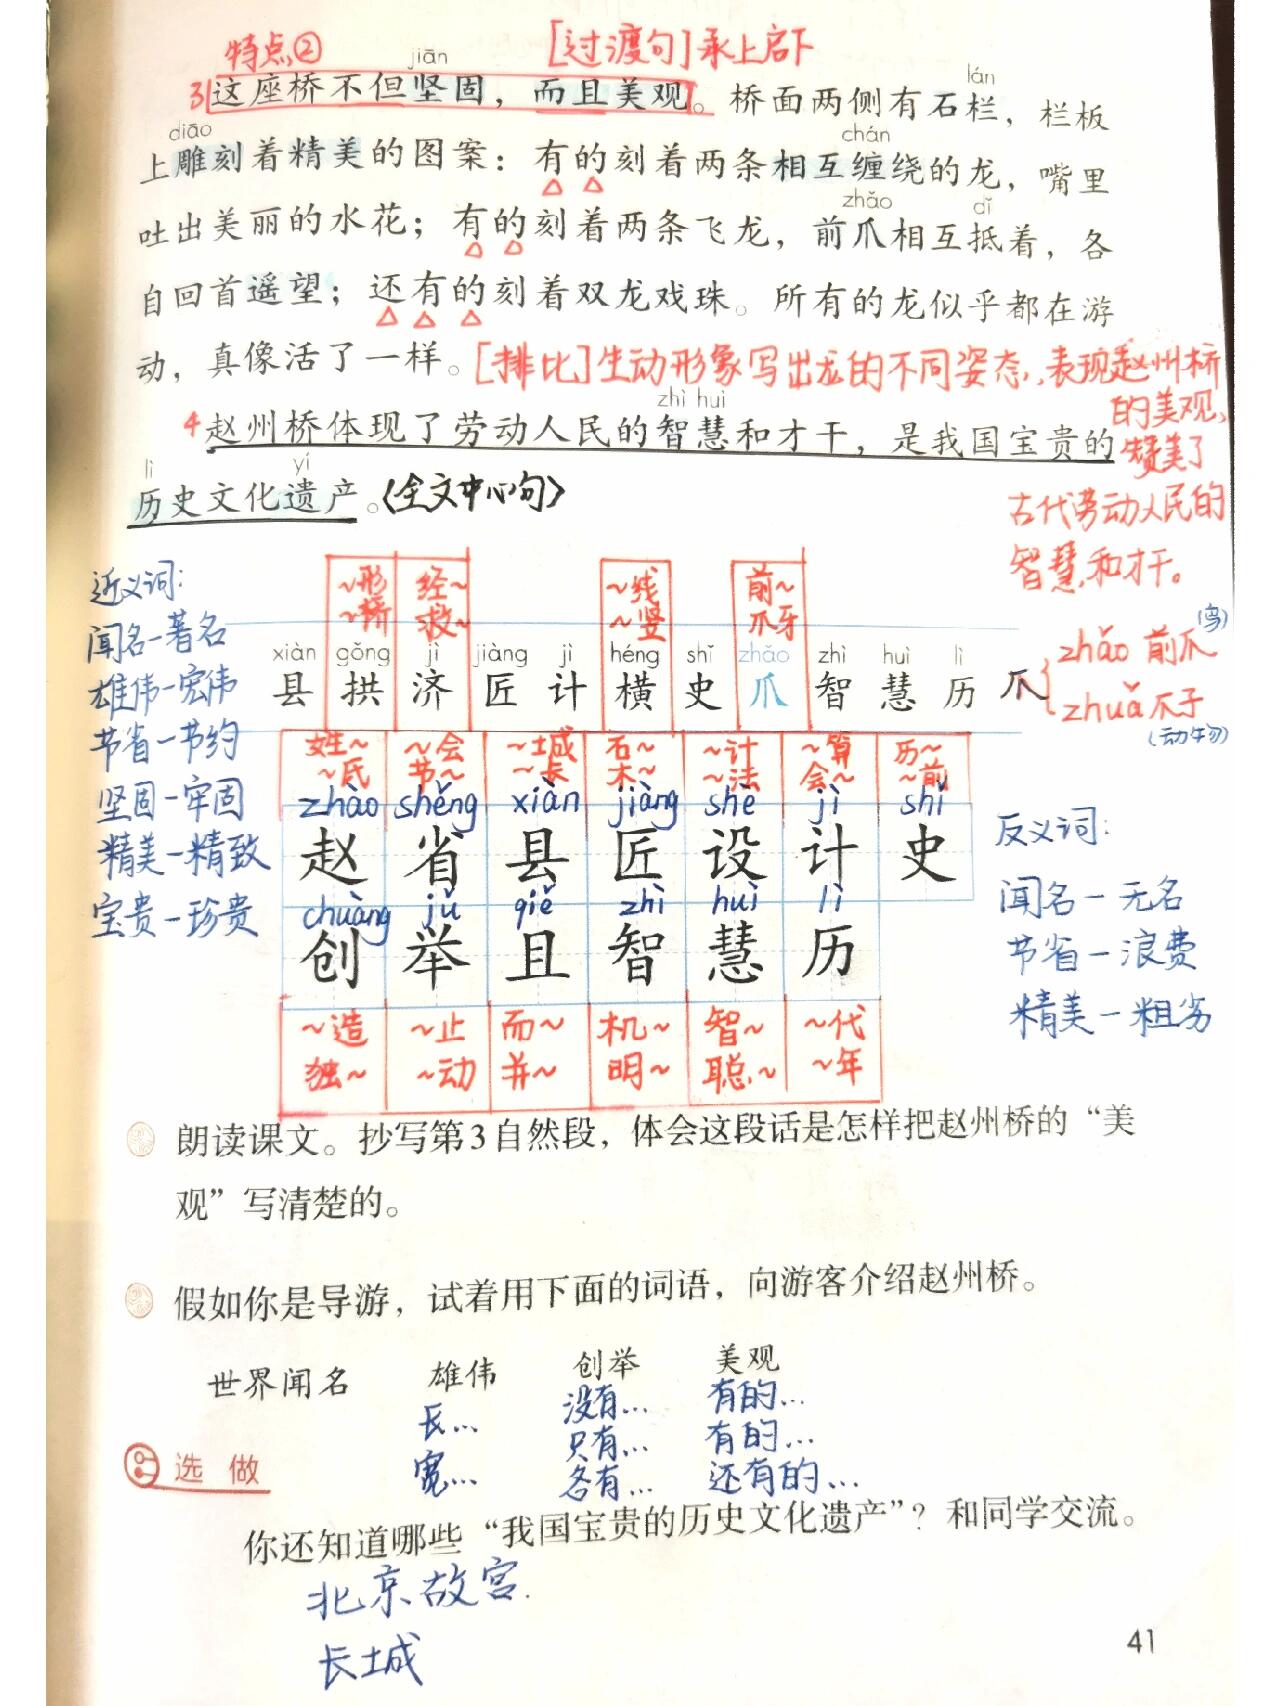 特点② [过渡句]承上启下
jiān
3 这座桥不但坚固，而且美观。桥面两侧有石栏，栏板
lán
diāo chán
上雕刻着精美的图案：有的刻着两条相互缠绕的龙，嘴里
zhǎo dǐ
吐出美丽的水花；有的刻着两条飞龙，前爪相互抵着，各
自回首遥望；还有的刻着双龙戏珠。所有的龙似乎都在游
动，真像活了一样。[排比]生动形象写出龙的不同姿态，表现赵州桥
的美观，
赞美了
古代劳动人民的
智慧和才干。
zhì huì
4 赵州桥体现了劳动人民的智慧和才干，是我国宝贵的
lì yí
历史文化遗产。〈全文中心句〉
近义词：
闻名－著名
雄伟－宏伟
节省－节约
坚固－牢固
精美－精致
宝贵－珍贵
~形 经~ ~线 前~
~桥 救~ ~竖 爪牙
xiàn gǒng jì jiàng jì héng shǐ zhǎo zhì huì lì
县 拱 济 匠 计 横 史 爪 智 慧 历
爪 zhǎo 前爪 (鸟)
zhuǎ 爪子
(动物)
姓~ ~会 ~城 石~ ~计 ~算 历~
~氏 节~ ~长 木~ ~法 会~ ~前
zhào shěng xiàn jiàng shè jì shǐ
赵 省 县 匠 设 计 史
chuàng jǔ qiě zhì huì lì
创 举 且 智 慧 历
~造 ~止 而~ 机~ 智~ ~代
独~ ~动 并~ 明~ 聪~ ~年
反义词：
闻名－无名
节省－浪费
精美－粗劣
朗读课文。抄写第3自然段，体会这段话是怎样把赵州桥的“美
观”写清楚的。
假如你是导游，试着用下面的词语，向游客介绍赵州桥。
世界闻名 雄伟 创举 美观
长… 没有… 有的…
宽… 只有… 有的…
各有… 还有的…
选做
你还知道哪些“我国宝贵的历史文化遗产”？和同学交流。
北京故宫.
长城
41